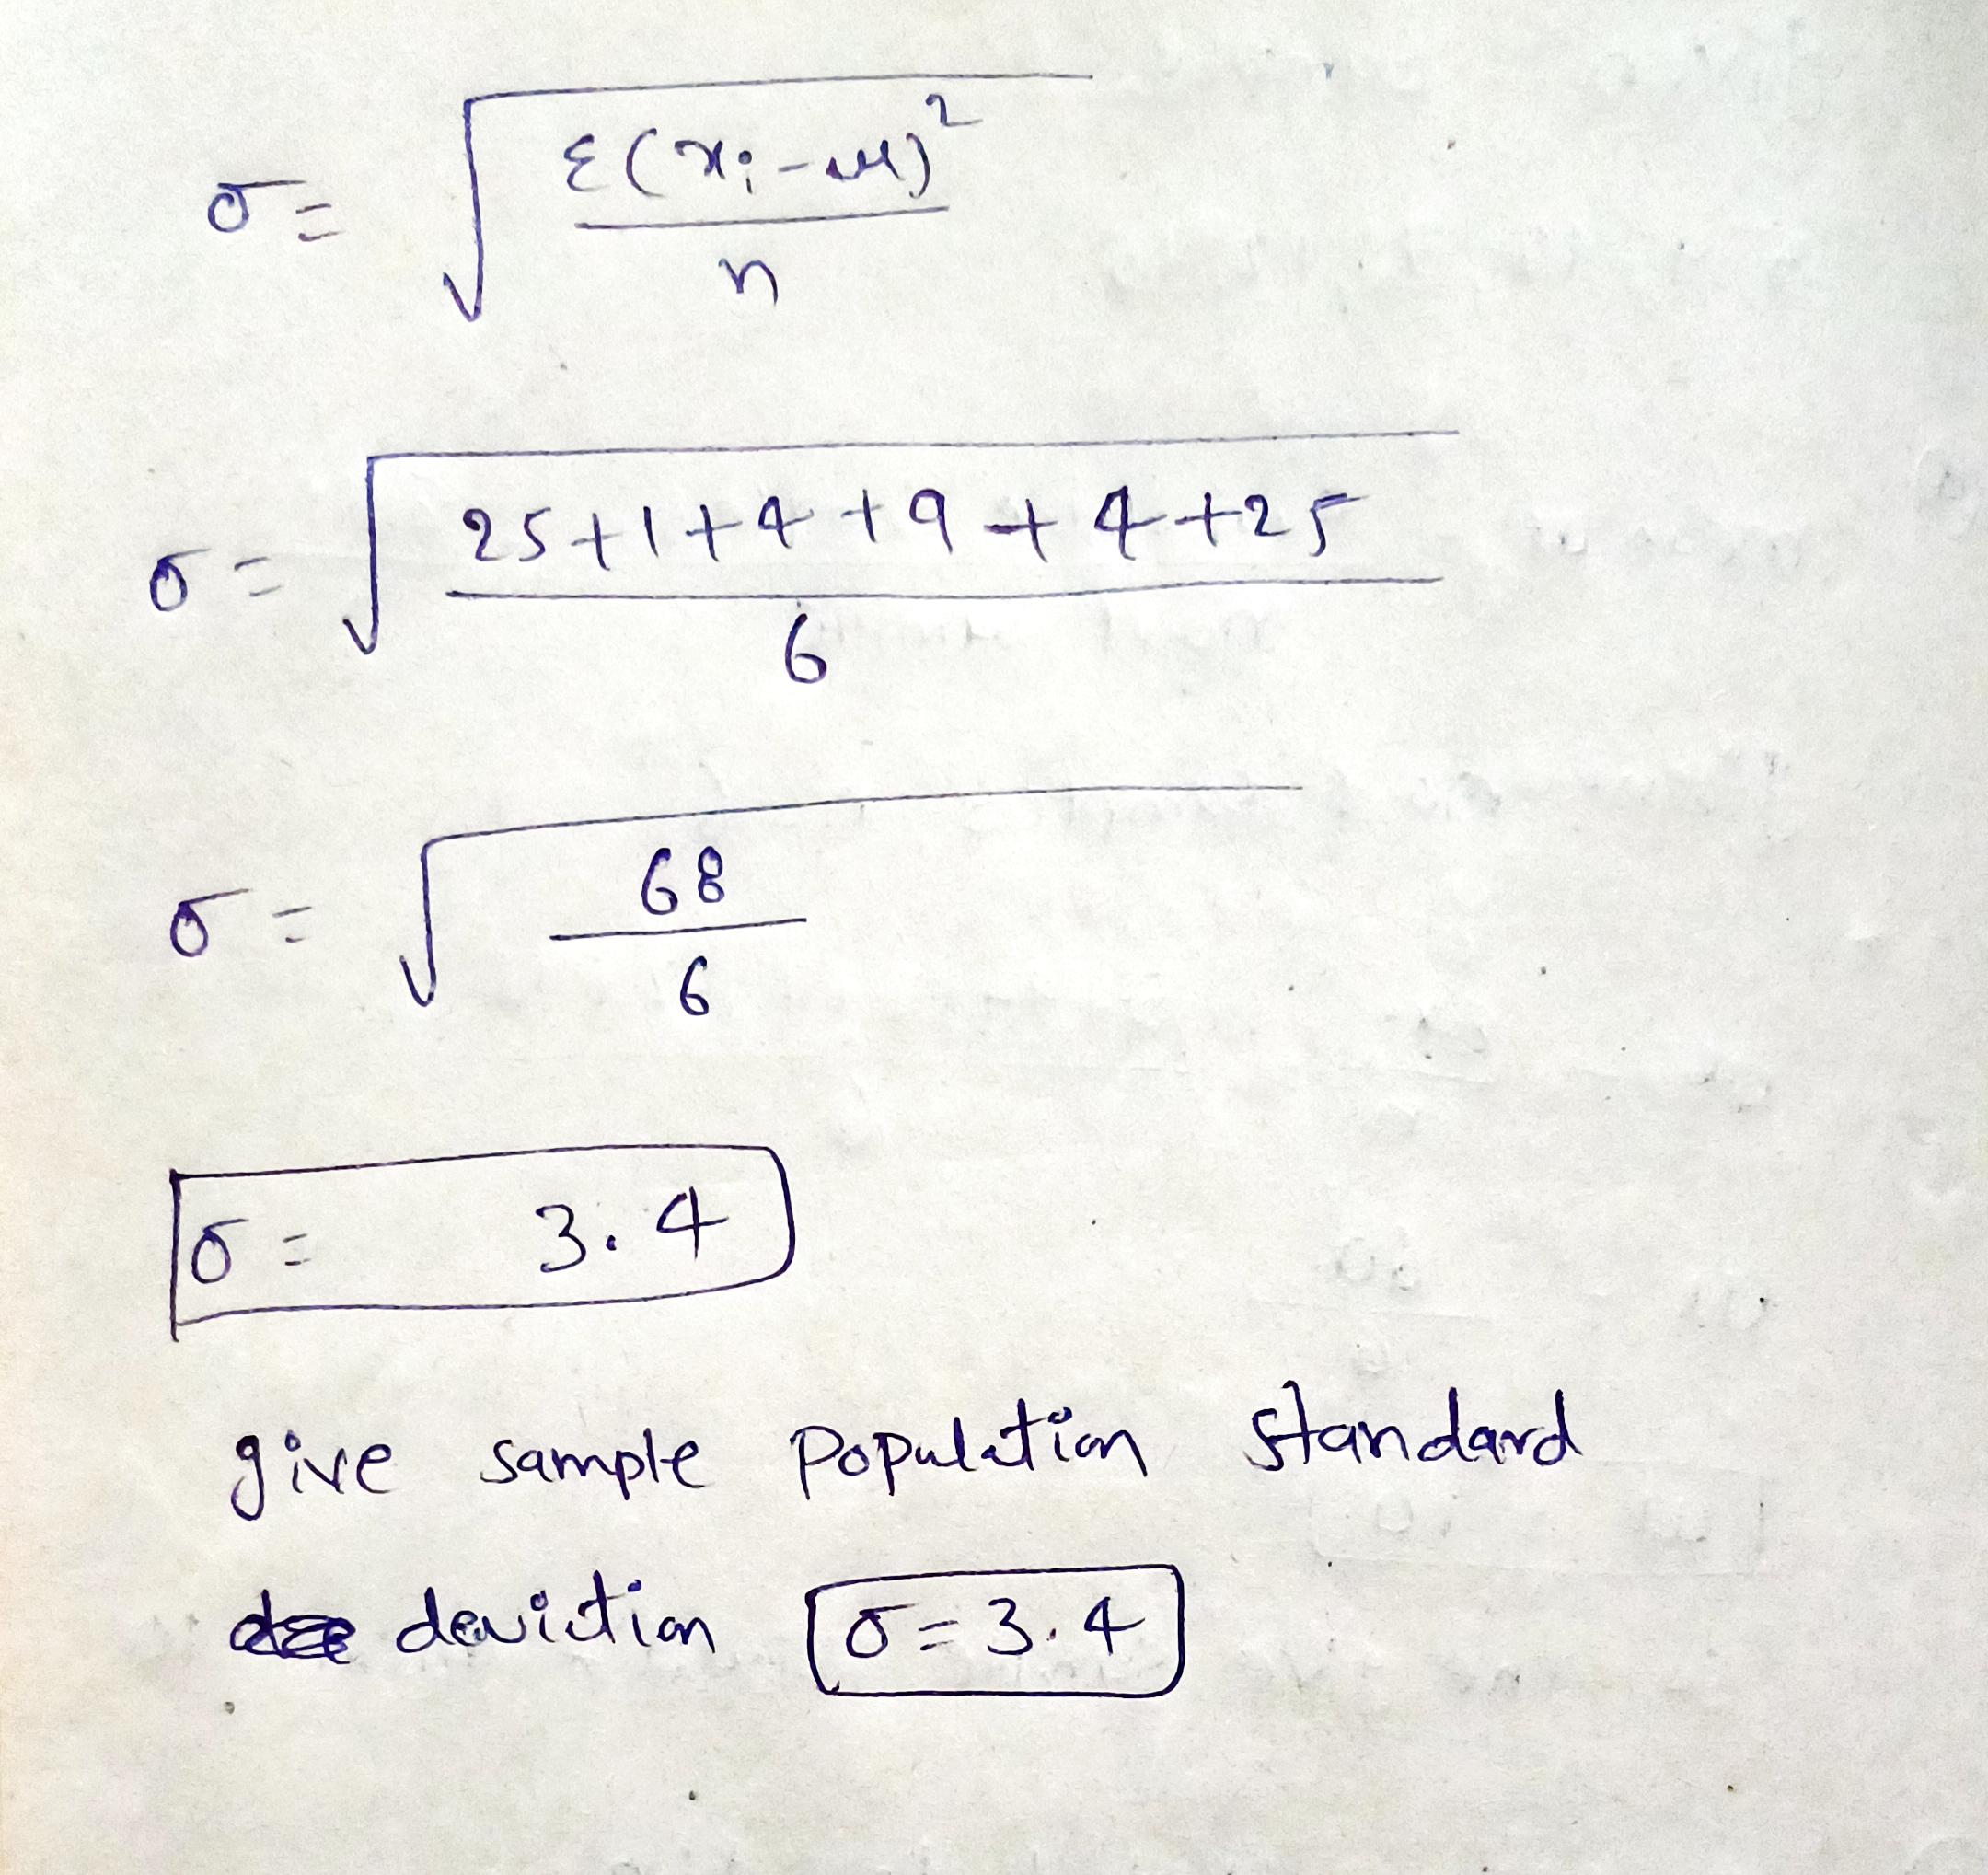 σ = √(Σ(xi - μ)² / n)
σ = √(25+1+4+9+4+25 / 6)
σ = √(68 / 6)
σ = 3.4
give sample Population standard
deviation σ = 3.4